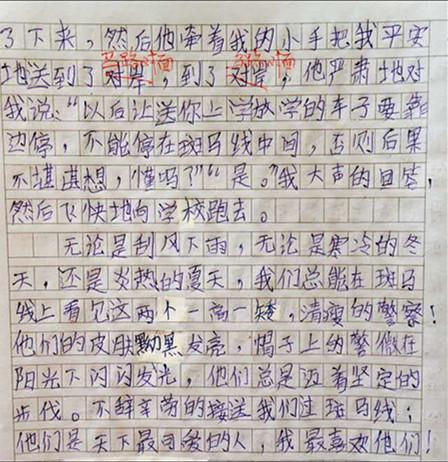 了下来，然后他牵着我的小手把我平安
马路对面 马路对面
地送到了对岸，到了对岸，他严肃地对
我说：“以后让送你上学放学的车子要靠
边停，不能停在斑马线中间，否则后果
不堪谌想，懂吗？”“是。”我大声的回答，
然后飞快地向学校跑去。
无论是刮风下雨，无论是寒冷的冬
天，还是炎热的夏天，我们总能在斑马
线上看见这两个一高一矮，清瘦的警察！
他们的皮肤黝黑发亮，帽子上的警徽在
阳光下闪闪发光，他们总是迈着坚定的
步伐。不辞辛劳的接送我们过斑马线；
他们是天下最可爱的人，我最喜欢他们！